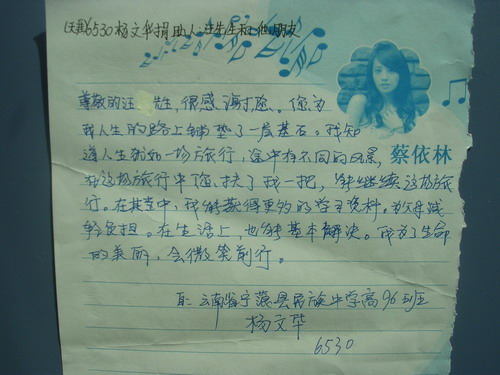 6530杨文华捐助人:汪先生和他朋友
尊敬的汪 先生,很感谢您。您为
我人生的路上铺垫了一层基石。我知
道人生犹如一场旅行,途中有不同的风景,
在这场旅行中您扶了我一把,能继续这场旅
行。在其中,我能获得更多的学习资料。为父母减
轻负担。在生活上,也能基本解决。我为了生命
的美丽,会微笑前行。
蔡依林
云南省宁蒗县民族中学高96班
杨文华
6530